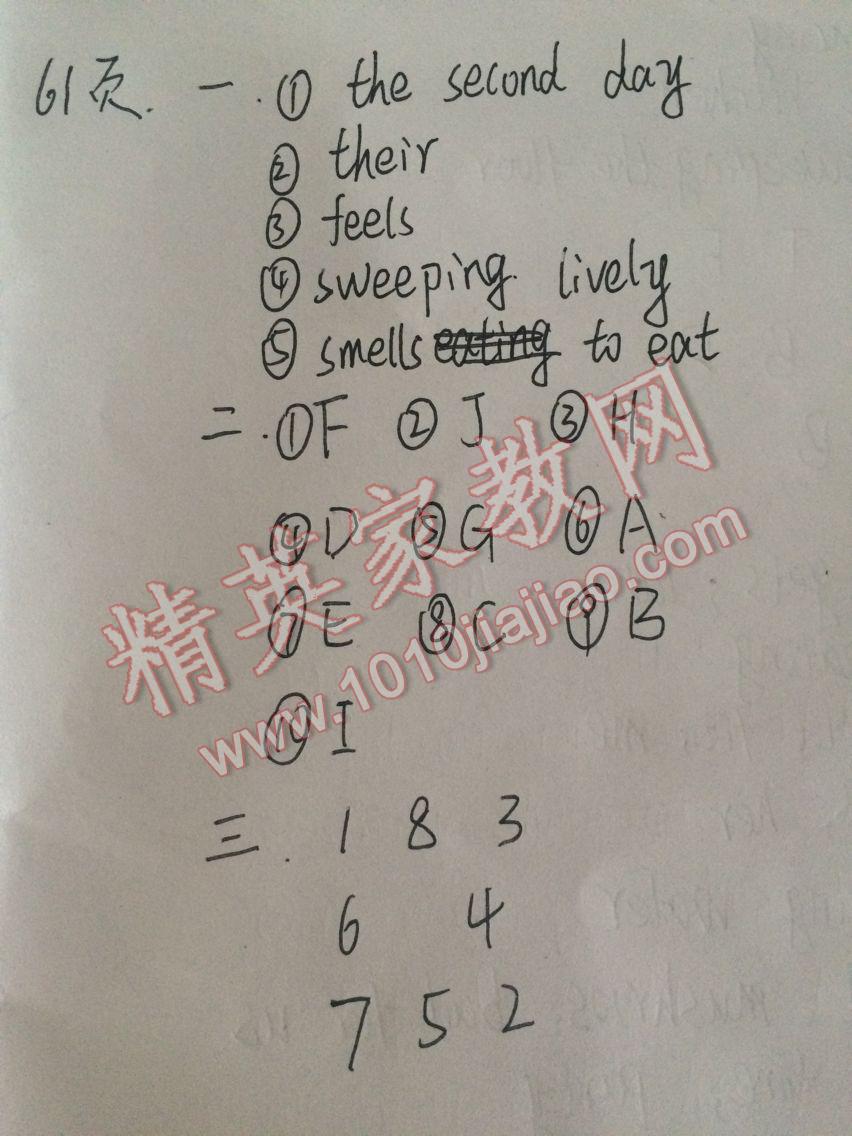 61页. 一. ① the second day
② their
③ feels
④ sweeping lively
⑤ smells eating to eat
二. ①F ② J ③ H
④ D ⑤ G ⑥ A
⑦ E ⑧ C ⑨ B
⑩ I
三. 1 8 3
6 4
7 5 2
精英家教网
www.1010jiajiao.com